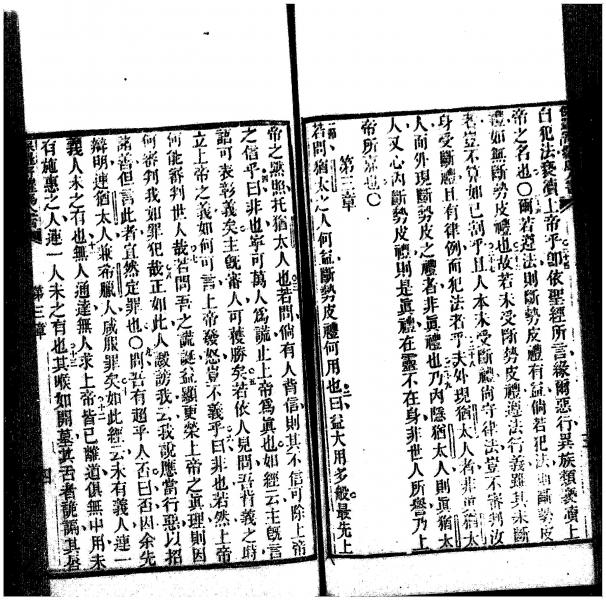 白犯法褻瀆上帝乎卽依聖經所言緣爾惡行異族類褻瀆上
帝之名也○爾若遵法則斷勢皮禮有益倘若犯法則斷勢皮
禮如無斷勢皮禮也故若未受斷勢皮禮遵法行義雖其未斷
者豈不算如已割乎且人本未受斷禮倘守律法豈不審判汝
身受斷禮且有律例而犯法者乎夫外現猶太人者非眞猶太
人面外現斷勢皮之禮者非眞禮也乃內隱猶太人則眞猶太
人又心內斷勢皮禮則是眞禮在靈不在身非世人所譽乃上
帝所嘉也○
第三章
若問猶太之人何益斷勢皮禮何用也曰益大用多般最先上
帝之默照托猶太人也若問倘有人背信則其不信可除上帝
之信乎曰非也寧可萬人爲謊止上帝爲眞也如經云主旣言
語可表彰義矣主旣審人可獲勝矣若依人見問吾背義之時
立上帝之義如何可言上帝發怒豈不義乎曰非也若然上帝
何能審判世人哉若問吾之謊誕益顯更榮上帝之眞理則因
何審判我如罪犯哉正如此人毀謗我云我說應當行惡以招
諸善但言此者宜然定罪也○問吾有超乎人否曰否因余先
辯明連猶太人兼希臘人咸服罪矣如此經云未有義人連一
義人未之有也無人通達無人求上帝皆已離道俱無中用未
有施惠之人連一人未之有也其喉如開墓其舌者詭譎其唇
第三章